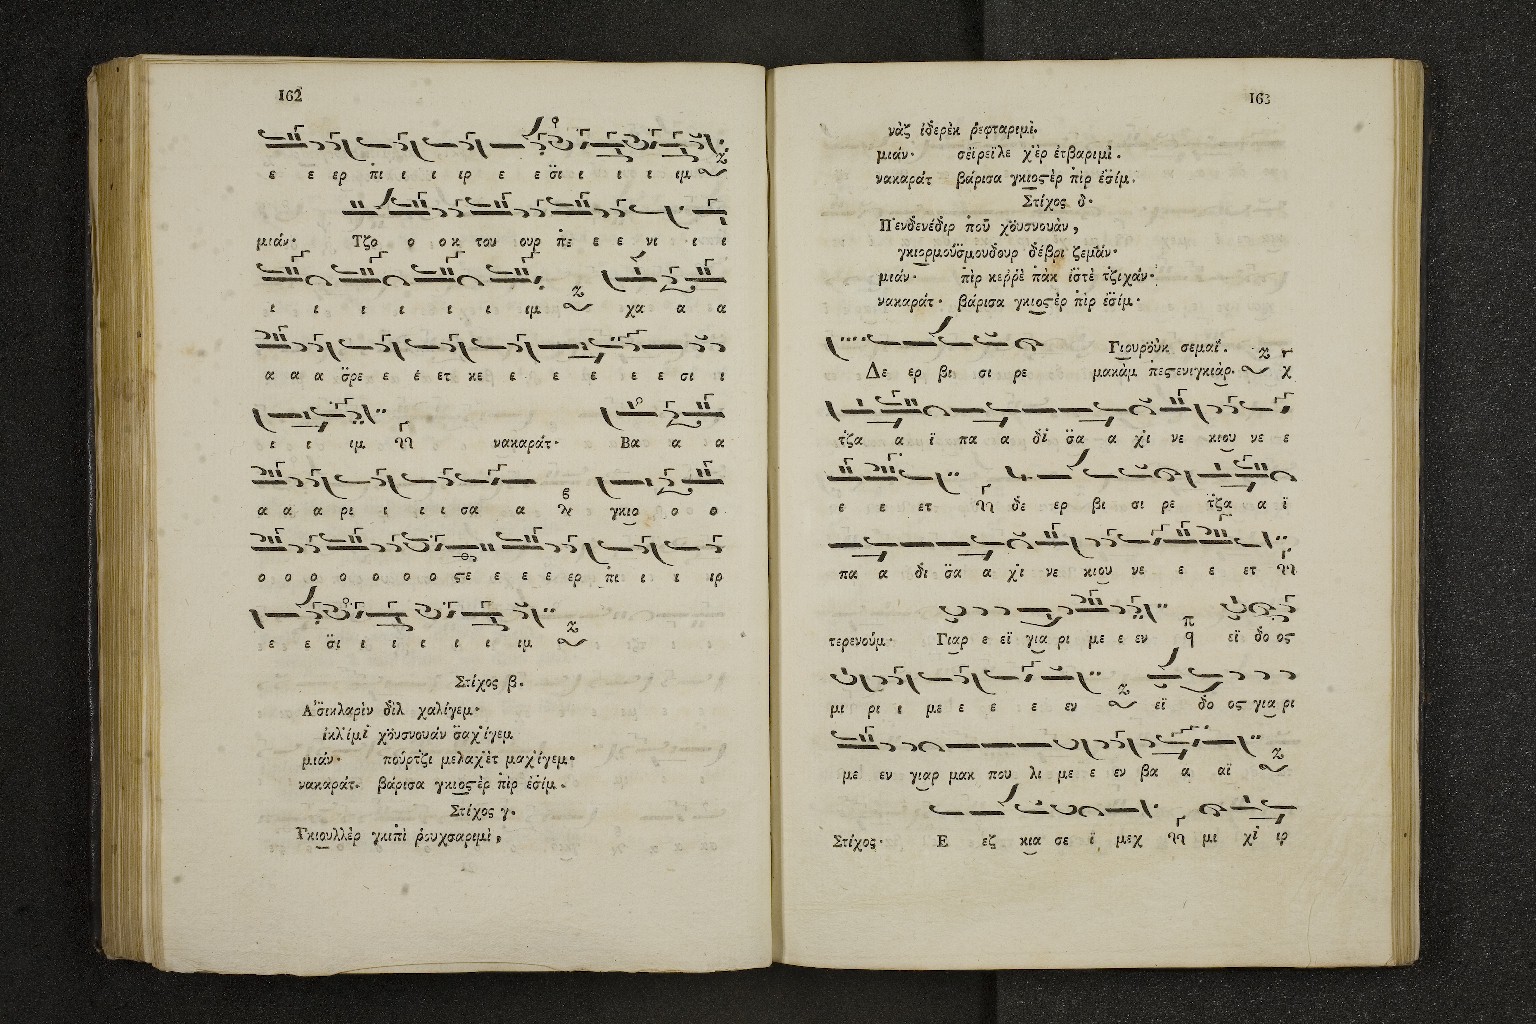 162
ε ε ερ πι ι ι ιρ ε ε σ̈ι ι ι ι ιμ
μιάν· Τζο ο οκ του ουρ πε ε ε νι ι ι
ι ι ι ι ι ι ιμ χα α α
α α α σ̈ρε ε έ ετ κε ε ε ε ε ε σι ι
ι ι ιμ νακαράτ· Βα α α
α α α ρι ι ι ι σα α γκιο ο ο
ο ο ο ο ο ο ο ςε ε ε ε ερ πι ι ι ιρ
ε ε σ̈ι ι ι ι ι ι ιμ
Στίχος β.
Α'σ̈ικλαρὶν δὶλ χαλίγεμ·
ἐκλ̇ίμὶ χὄυσνουάν σ̈αχ̇ίγεμ
μιάν· πούρτζι μελαχ̇ὲτ μαχ̇ίγεμ·
νακαράτ· βάρισα γκιοςὲρ πὶρ ἐσ̈ίμ.
Στίχος γ.
Γκιουλλὲρ γκιπὶ ῥουχσαριμὶ,
163
νὰζ ἐδερὲκ ῥεφταριμὶ.
μιάν· σεϊρεϊλε χ̇ὲρ ἐτβαριμὶ.
νακαράτ βάρισα γκιοςὲρ πὶρ ἐσ̈ίμ.
Στίχος δ·
Π'ενδενέδιρ ποῦ χὄυσνουὰν,
γκιορμοὔσμουδουρ δέβρι ζεμάν·
μιάν· πὶρ κεῤῥὲ πὰκ ἴστὲ τζιχάν·
νακαράτ· βάρισα γκιοςὲρ πὶρ ἐσ̈ίμ·
Γιουρὄυκ σεμαΐ.
Δε ερ βι σι ρε μακὰμ πεςενιγκιὰρ. χ
τζα α ϊ πα α δι σ̈α α χ̇ι νε κιου νε ε
ε ε ετ δε ερ βι σι ρε τζα α ϊ
πα α δι σ̈α α χ̇ι νε κιου νε ε ε ετ
τερενούμ· Γιαρ ε εϊ για ρι με ε εν π q εϊ δο ος
μι ρι ι με ε ε ε εν εϊ δο ος για ρι
με εν γιαρ μακ που λι με ε εν βα α αϊ
Στίχος· Ε εζ κια σε ϊ μεχ μι χ̇ι ιρ